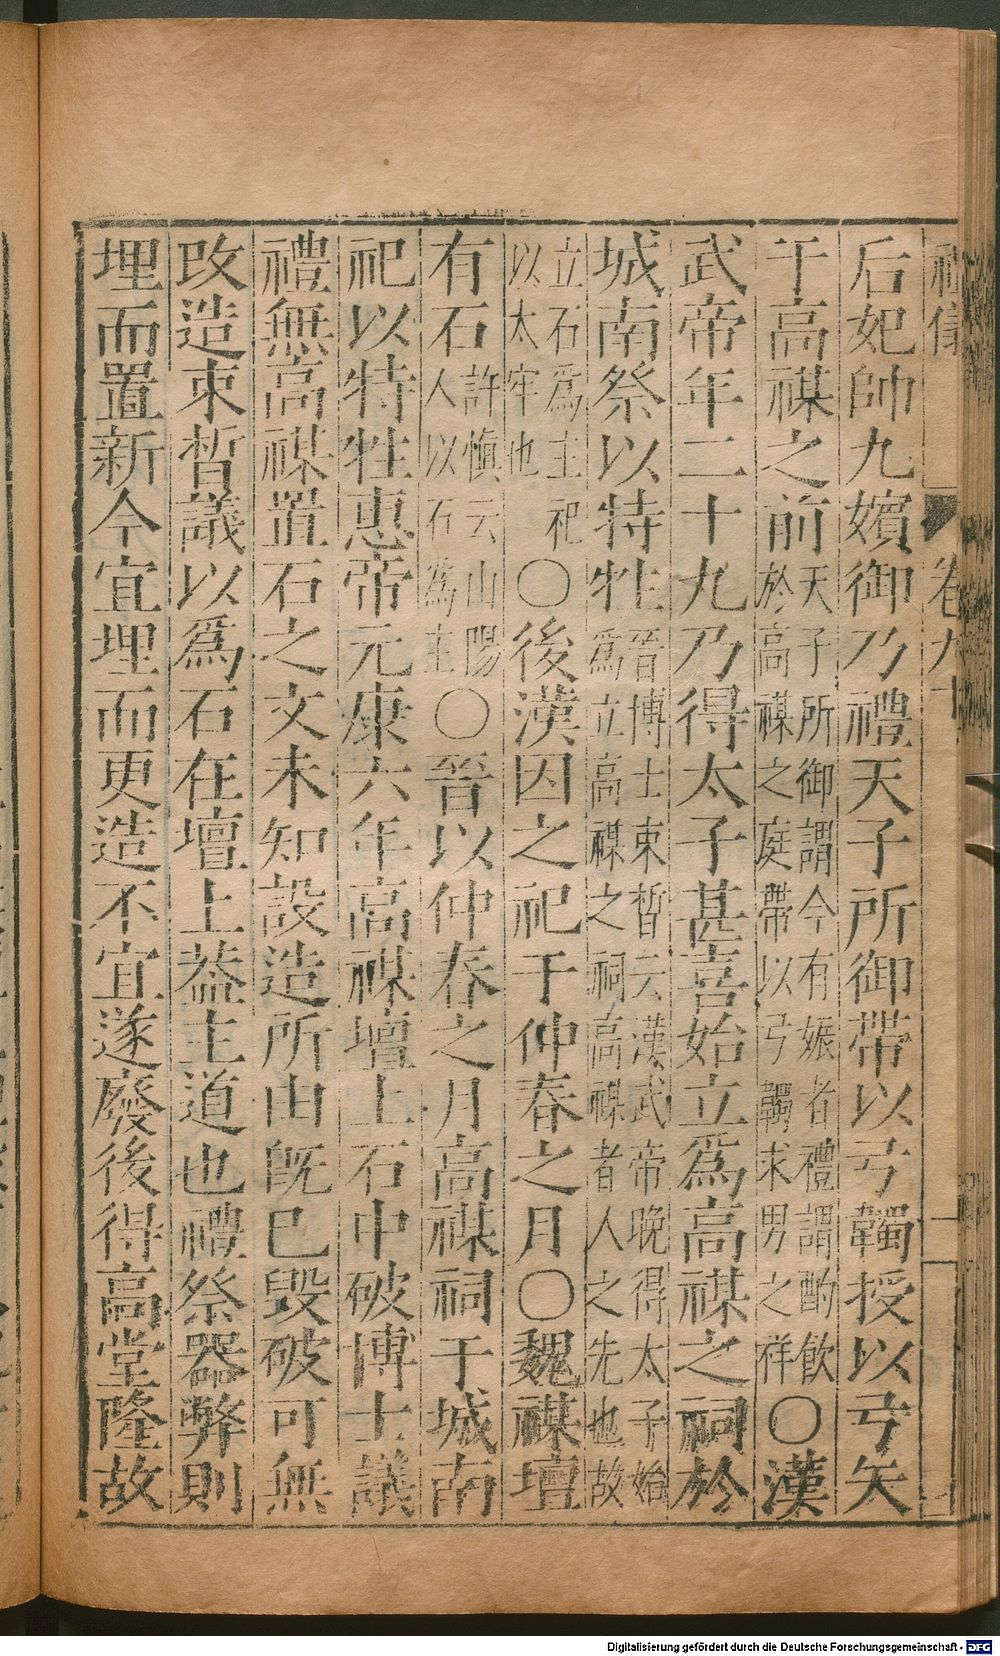 禮儀 卷九十 一
后妃帥九嬪御乃禮天子所御帶以弓韣授以弓矢
于高禖之前天子所御謂今有娠者禮謂酌飲於高禖之庭帶以弓韣求男之祥〇漢
武帝年二十九乃得太子甚喜始立爲高禖之祠於
城南祭以特牲晉博士束晳云漢武帝晚得太子始爲立高禖之祠高禖者人之先也故
立石爲主祀以太牢也〇後漢因之祀于仲春之月〇魏禖壇
有石許慎云山陽人以石爲主〇晉以仲春之月高禖祠于城南
祀以特牲惠帝元康六年高禖壇上石中破博士議
禮無高禖置石之文未知設造所由旣巳毀破可無
改造束晳議以爲石在壇上葢主道也禮祭器弊則
埋而置新今宜埋而更造不宜遂廢後得高堂隆故
Digitalisierung gefördert durch die Deutsche Forschungsgemeinschaft - DFG